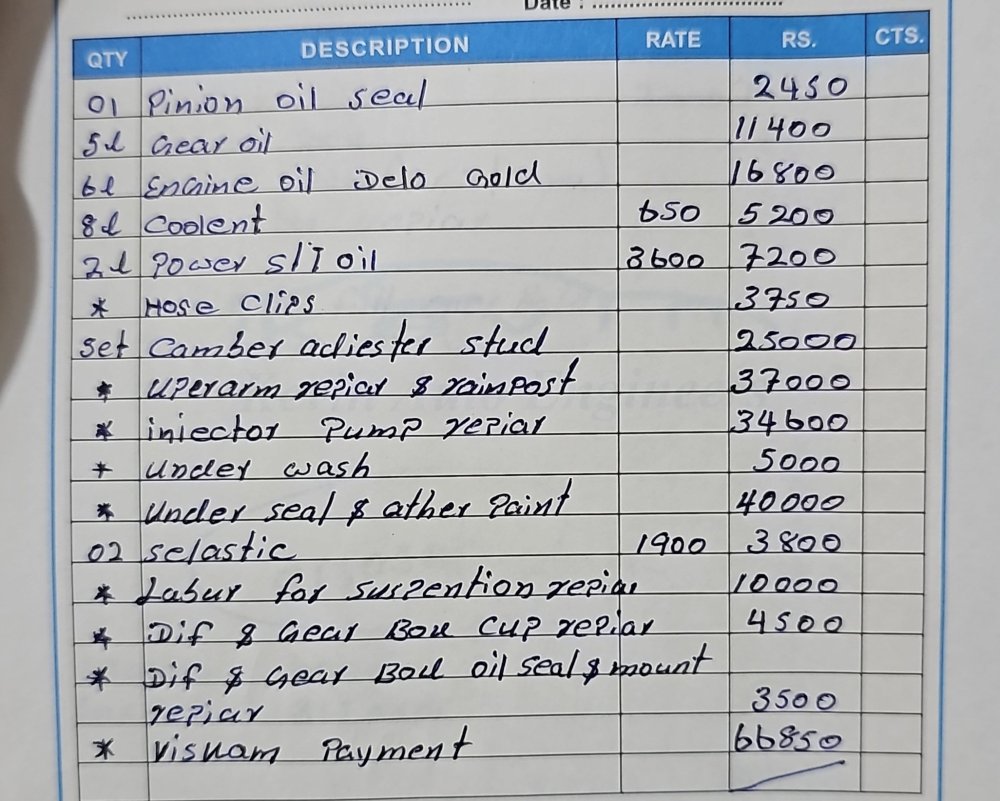 Date :
QTY DESCRIPTION RATE RS. CTS.
01 Pinion oil seal 2450
5l Gear oil 11400
6l Engine oil Delo Gold 16800
8l Coolent 650 5200
2l Power S/T oil 3600 7200
* Hose Clips 3750
Set Camber adiester stud 25000
* uperarm repiar & rainpost 37000
* injector Pump repiar 34600
* under wash 5000
* Under seal & ather Paint 40000
02 selastic 1900 3800
* Labur for suspention repiar 10000
* Dif & Gear Box Cup repiar 4500
* Dif & Gear Box oil seal & mount
repiar 3500
* Visuam Payment 66850